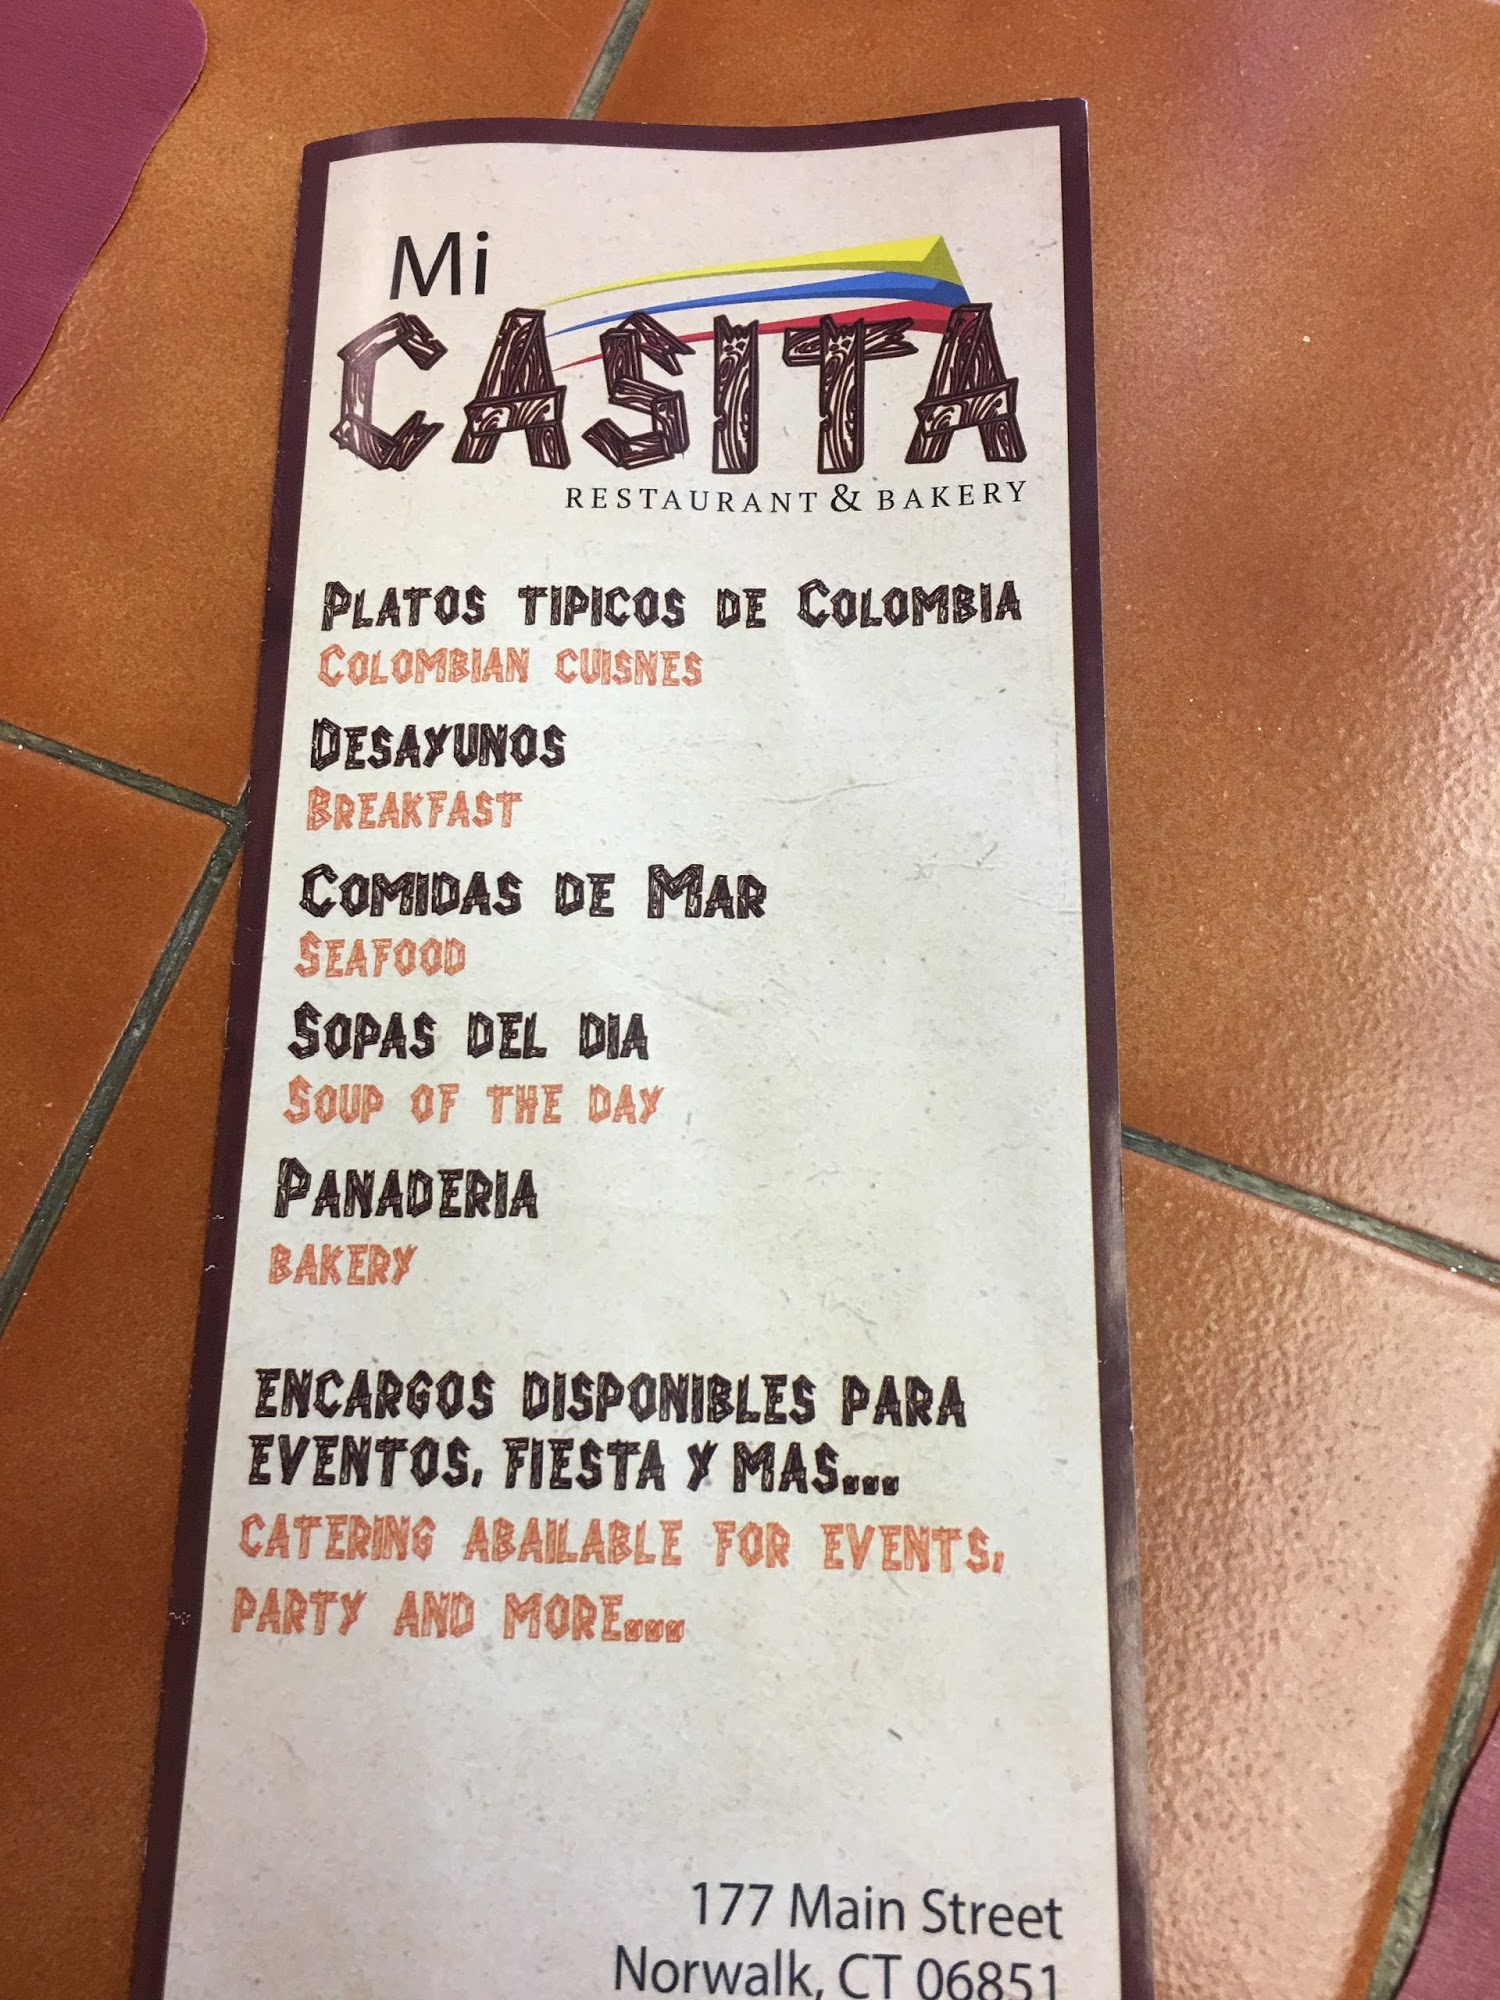 Mi
CASITA
RESTAURANT & BAKERY
PLATOS TIPICOS DE COLOMBIA
COLOMBIAN CUISNES
DESAYUNOS
BREAKFAST
COMIDAS DE MAR
SEAFOOD
SOPAS DEL DIA
SOUP OF THE DAY
PANADERIA
BAKERY
ENCARGOS DISPONIBLES PARA
EVENTOS, FIESTA Y MAS...
CATERING ABAILABLE FOR EVENTS,
PARTY AND MORE...
177 Main Street
Norwalk, CT 06851